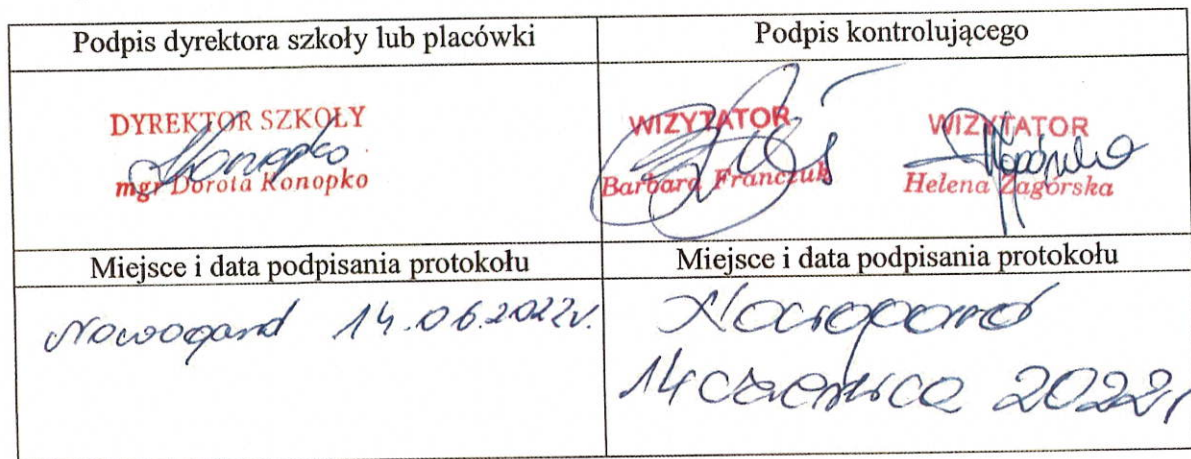 Podpis dyrektora szkoły lub placówki
Podpis kontrolującego
DYREKTOR SZKOŁY
mgr Dorota Konopko
WIZYTATOR
Barbara Franczuk
WIZYTATOR
Helena Zagórska
Miejsce i data podpisania protokołu
Miejsce i data podpisania protokołu
Nowogard 14.06.2022r.
Nowogard
14 czerwca 2022r